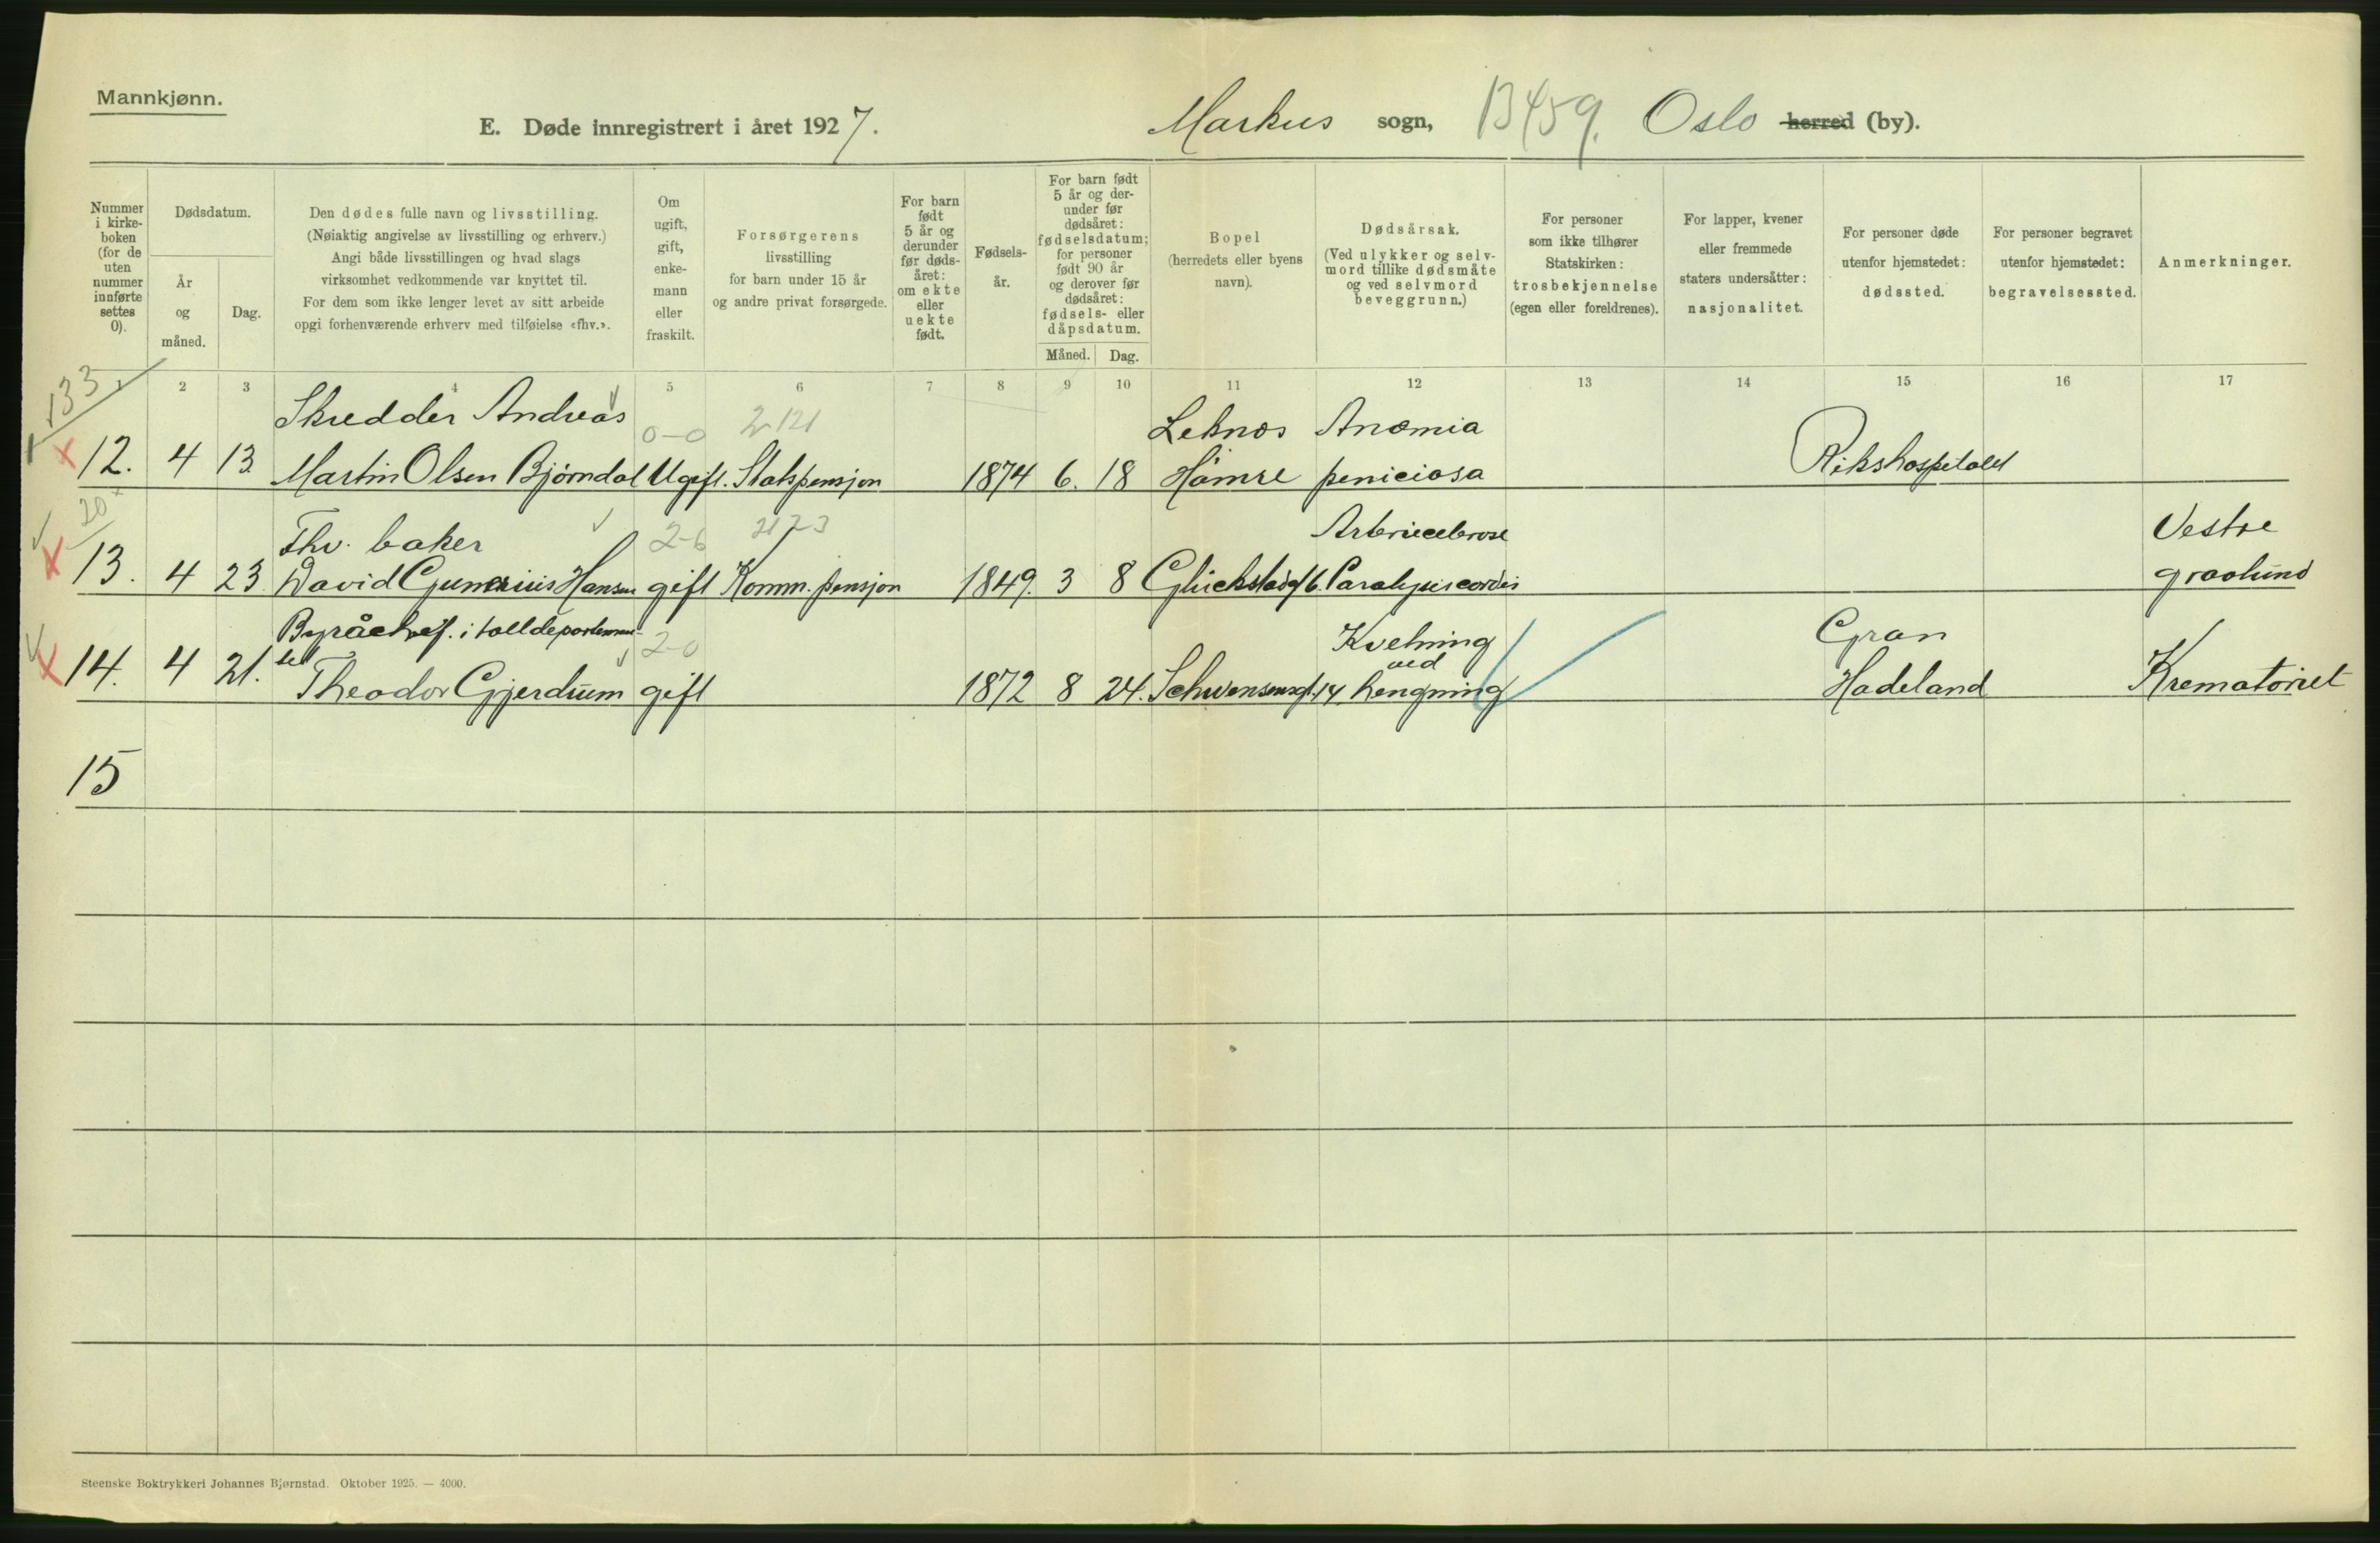 Mannkjønn.
E. Døde innregistrert i året 1927.
Markus sogn, B459. Oslo herred (by).
Nummer i kirke-boken (for de uten nummer innførte settes 0).
Dødsdatum.
År og måned.
Dag.
Den dødes fulle navn og livsstilling.
(Nøiaktig angivelse av livsstilling og erhverv.)
Angi både livsstillingen og hvad slags
virksomhet vedkommende var knyttet til.
For dem som ikke lenger levet av sitt arbeide
opgi forhenværende erhverv med tilføielse «fhv.».
Om ugift, gift, enke-mann eller fraskilt.
Forsørgerens
livsstilling
for barn under 15 år
og andre privat forsørgede.
For barn født 5 år og derunder før døds-året: om ekte eller uekte født.
Fødsels-år.
For barn født 5 år og der-under før dødsåret: fødselsdatum; for personer født 90 år og derover før dødsåret: fødsels- eller dåpsdatum.
Måned. Dag.
Bopel
(herredets eller byens
navn).
Dødsårsak.
(Ved ulykker og selv-
mord tillike dødsmåte
og ved selvmord
beveggrunn.)
For personer
som ikke tilhører
Statskirken:
trosbekjennelse
(egen eller foreldrenes).
For lapper, kvener
eller fremmede
staters undersåtter:
nasjonalitet.
For personer døde
utenfor hjemstedet:
dødssted.
For personer begravet
utenfor hjemstedet:
begravelsessted.
Anmerkninger.
2 3 4 5 6 7 8 9 10 11 12 13 14 15 16 17
133
Skredder Andreas 0-0 2121 Leknes Anæmia
12. 4 13 Martin Olsen Bjørndal Ugift. Statspensjon 1874 6. 18 Hamre peniciosa Rikshospitalet
20
Fhv. baker 2-6 Vestre
13. 4 23 David Gunerius Hansen gift Komm. pensjon 1849. 3 8 Glückstadgt 6. Paralysis cordis gravlund
Byråchef. i tolldepartemen- 2-0 Kvelning Gran
tet ved
14. 4 21. Theodor Gjerdrum gift 1872 8 24. Schwensensgt. 14 hengning Hadeland Krematoriet
15
Steenske Boktrykkeri Johannes Bjørnstad. Oktober 1925. — 4000.